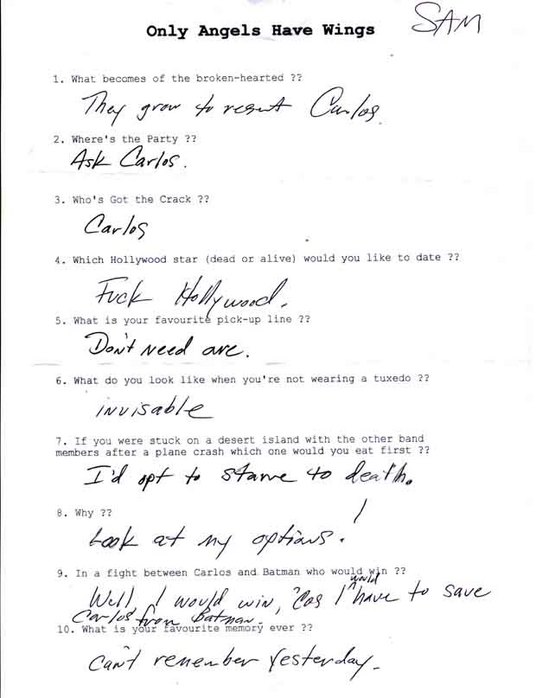 SAM
Only Angels Have Wings
1. What becomes of the broken-hearted ??
They grow to resent Carlos.
2. Where's the Party ??
Ask Carlos.
3. Who's Got the Crack ??
Carlos
4. Which Hollywood star (dead or alive) would you like to date ??
Fuck Hollywood.
5. What is your favourite pick-up line ??
Don't need one.
6. What do you look like when you're not wearing a tuxedo ??
invisable
7. If you were stuck on a desert island with the other band
members after a plane crash which one would you eat first ??
I'd opt to starve to death.
8. Why ??
Look at my options!
9. In a fight between Carlos and Batman who would win ??
Well, I would win, 'cos I would have to save
Carlos from Batman.
10. What is your favourite memory ever ??
Can't remember yesterday.